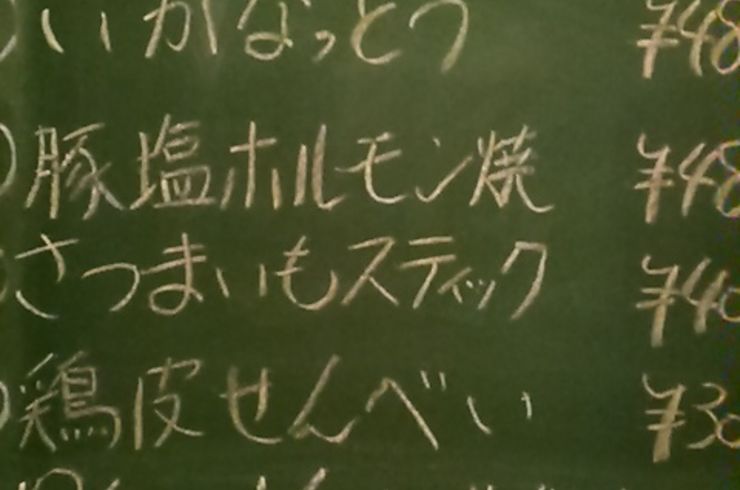 いかなっとう ¥48
豚塩ホルモン焼 ¥48
さつまいもスティック ¥40
鶏皮せんべい ¥30